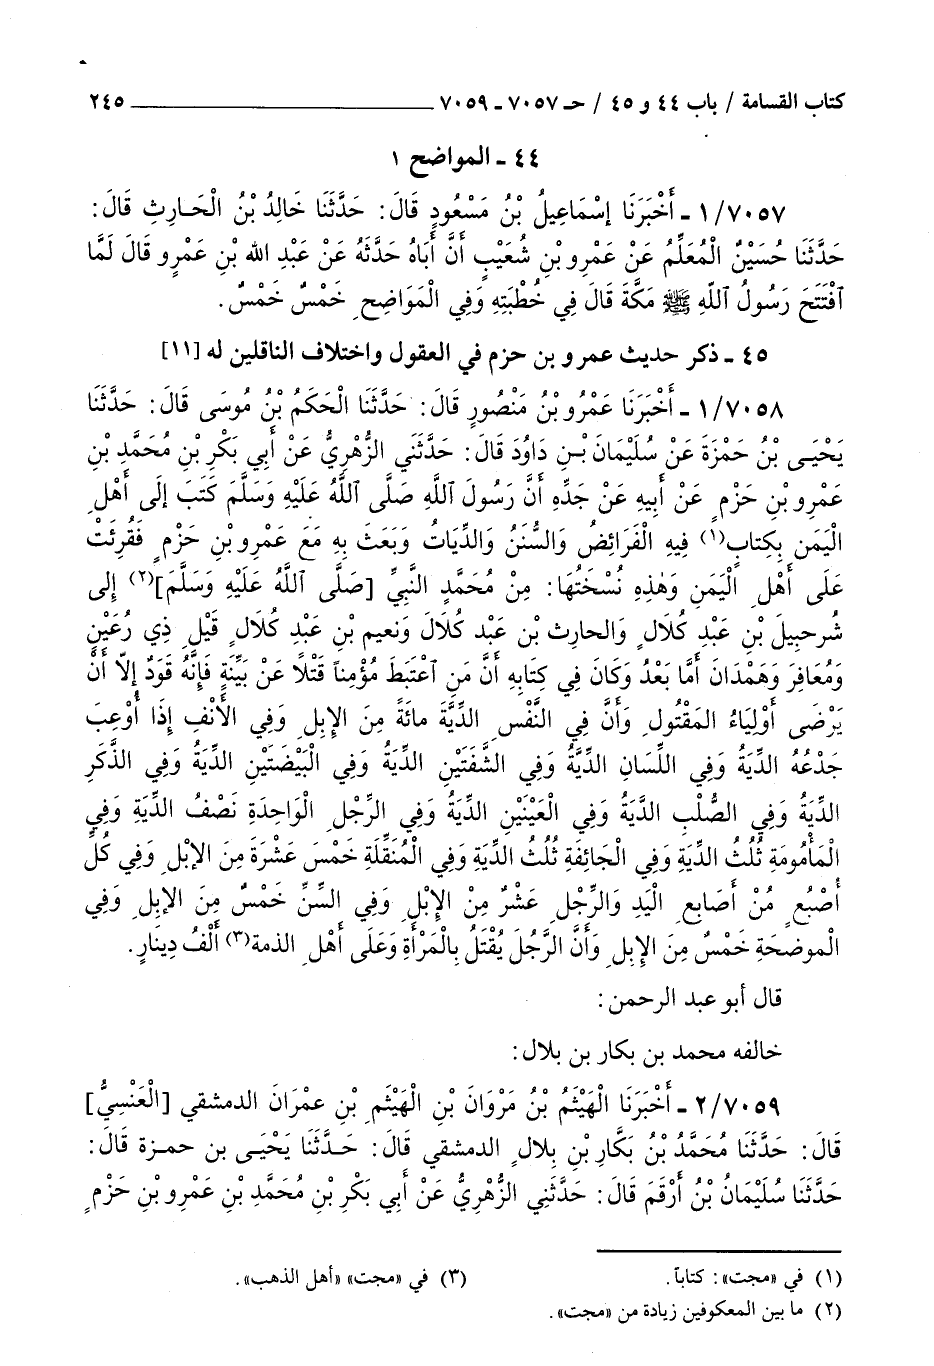 كتاب القسامة / باب ٤٤ و ٤٥ / حـ ٧٠٥٧ ـ ٧٠٥٩ ٢٤٥
٤٤ ـ المواضح ١
١/٧٠٥٧ ـ أَخْبَرَنَا إِسْمَاعِيلُ بْنُ مَسْعُودٍ قَالَ: حَدَّثَنَا خَالِدُ بْنُ الْحَـارِثِ قَالَ:
حَدَّثَنَا حُسَيْنٌ الْمُعَلِّمُ عَنْ عَمْرِو بْنِ شُعَيْبٍ أَنَّ أَبَاهُ حَدَّثَهُ عَنْ عَبْدِ الله بْنِ عَمْرٍو قَالَ لَمَّا
ٱفْتَتَحَ رَسُولُ ٱللَّهِ ﷺ مَكَّةَ قَالَ فِي خُطْبَتِهِ وَفِي الْمَوَاضِحِ خَمْسٌ خَمْسٌ.
٤٥ ـ ذكر حديث عمرو بن حزم في العقول واختلاف الناقلين له [١١]
١/٧٠٥٨ ـ أَخْبَرَنَا عَمْرُو بْنُ مَنْصُورٍ قَالَ: حَدَّثَنَا الْحَكَمُ بْنُ مُوسَى قَالَ: حَدَّثَنَا
يَحْيَـى بْنُ حَمْزَةَ عَنْ سُلَيْمَانَ بْـنِ دَاوُدَ قَالَ: حَدَّثَنِي الزُّهْرِيُّ عَنْ أَبِي بَكْرِ بْنِ مُحَمَّدِ بْنِ
عَمْرِو بْنِ حَزْمٍ عَنْ أَبِيهِ عَنْ جَدِّهِ أَنَّ رَسُولَ ٱللَّهِ صَلَّى ٱللَّهُ عَلَيْهِ وَسَلَّمَ كَتَبَ إِلَى أَهْلِ
الْيَمَنِ بِكِتَابٍ(١) فِيهِ الْفَرَائِضُ وَالسُّنَنُ وَالدِّيَاتُ وَبَعَثَ بِهِ مَعَ عَمْرِو بْنِ حَزْمٍ فَقُرِئَتْ
عَلَى أَهْلِ الْيَمَنِ وَهٰذِهِ نُسْخَتُهَا: مِنْ مُحَمَّدٍ النَّبِيِّ [صَلَّى ٱللَّهُ عَلَيْهِ وَسَلَّمَ](٢) إِلى
شرحبيلَ بْنِ عَبْدِ كُلَالٍ وَالحارث بْنِ عَبْدِ كُلَالَ وَنعيم بْنِ عَبْدِ كُلالٍ قَيْلِ ذِي رُعَيْنٍ
وَمُعَافِرَ وَهَمْدَانَ أَمَّا بَعْدُ وَكَانَ فِي كِتَابِهِ أَنَّ مَنِ ٱعْتَبَطَ مُؤْمِناً قَتْلاً عَنْ بَيِّنَةٍ فَإِنَّهُ قَوَدٌ إِلاَّ أَنَّ
يَرْضَى أَوْلِيَاءُ المَقْتُولِ وَأَنَّ فِي النَّفْسِ الدِّيَةَ مائَةً مِنَ الإِبِلِ وَفِي الأَنْفِ إِذَا أُوْعِبَ
جَدْعُهُ الدِّيَةُ وَفِي اللِّسَانِ الدِّيَّةُ وَفِي الشَّفَتَيْنِ الدِّيَةُ وَفِي الْبَيْضَتَيْنِ الدِّيَةُ وَفِي الذَّكَرِ
الدِّيَةُ وَفِي الصُّلْبِ الدَّيَةُ وَفِي الْعَيْنَيْنِ الدِّيَةُ وَفِي الرِّجْلِ الْوَاحِدَةِ نَصْفُ الدِّيَةِ وَفِي
الْمَأْمُومَةِ ثُلُثُ الدِّيَةِ وَفِي الْجَائِفَةِ ثُلُثُ الدِّيَةِ وَفِي الْمُنَقِّلَةِ خَمْسَ عَشْرَةَ مِنَ الإِبْلِ وَفِي كُلِّ
أُصْبُعٍ مُنْ أَصَابِعِ الْيَدِ وَالرِّجْلِ عَشْرٌ مِنْ الإِبْلِ وَفِي السِّنِّ خَمْسٌ مِنَ الإِبِلِ وَفِي
الْموضحَةِ خَمْسٌ مِنَ الإِبِلِ وَأَنَّ الرَّجُلَ يُقْتَلُ بِالْمَرْأَةِ وَعَلَى أَهْلِ الذمة(٣) أَلْفُ دِينَارٍ.
قال أبو عبد الرحمن:
خالفه محمد بن بكار بن بلال:
٢/٧٠٥٩ ـ أَخْبَرَنَا الْهَيْثَمُ بْنُ مَرْوَانَ بْنِ الْهَيْثَمِ بْنِ عِمْرَانَ الدمشقي [الْعَنْسِيُّ]
قَالَ: حَدَّثَنَا مُحَمَّدُ بْنُ بَكَّارِ بْنِ بِلالٍ الدمشقي قَالَ: حَـدَّثَنَا يَحْيَـى بن حمـزة قَالَ:
حَدَّثَنَا سُلَيْمَانُ بْنُ أَرْقَمَ قَالَ: حَدَّثَنِي الزُّهْرِيُّ عَنْ أَبِي بَكْرِ بْنِ مُحَمَّدِ بْنِ عَمْرِو بْنِ حَزْمٍ
(١) في «مجت»: كتاباً. (٣) في «مجت» «أهل الذهب».
(٢) ما بين المعكوفين زيادة من «مجت».